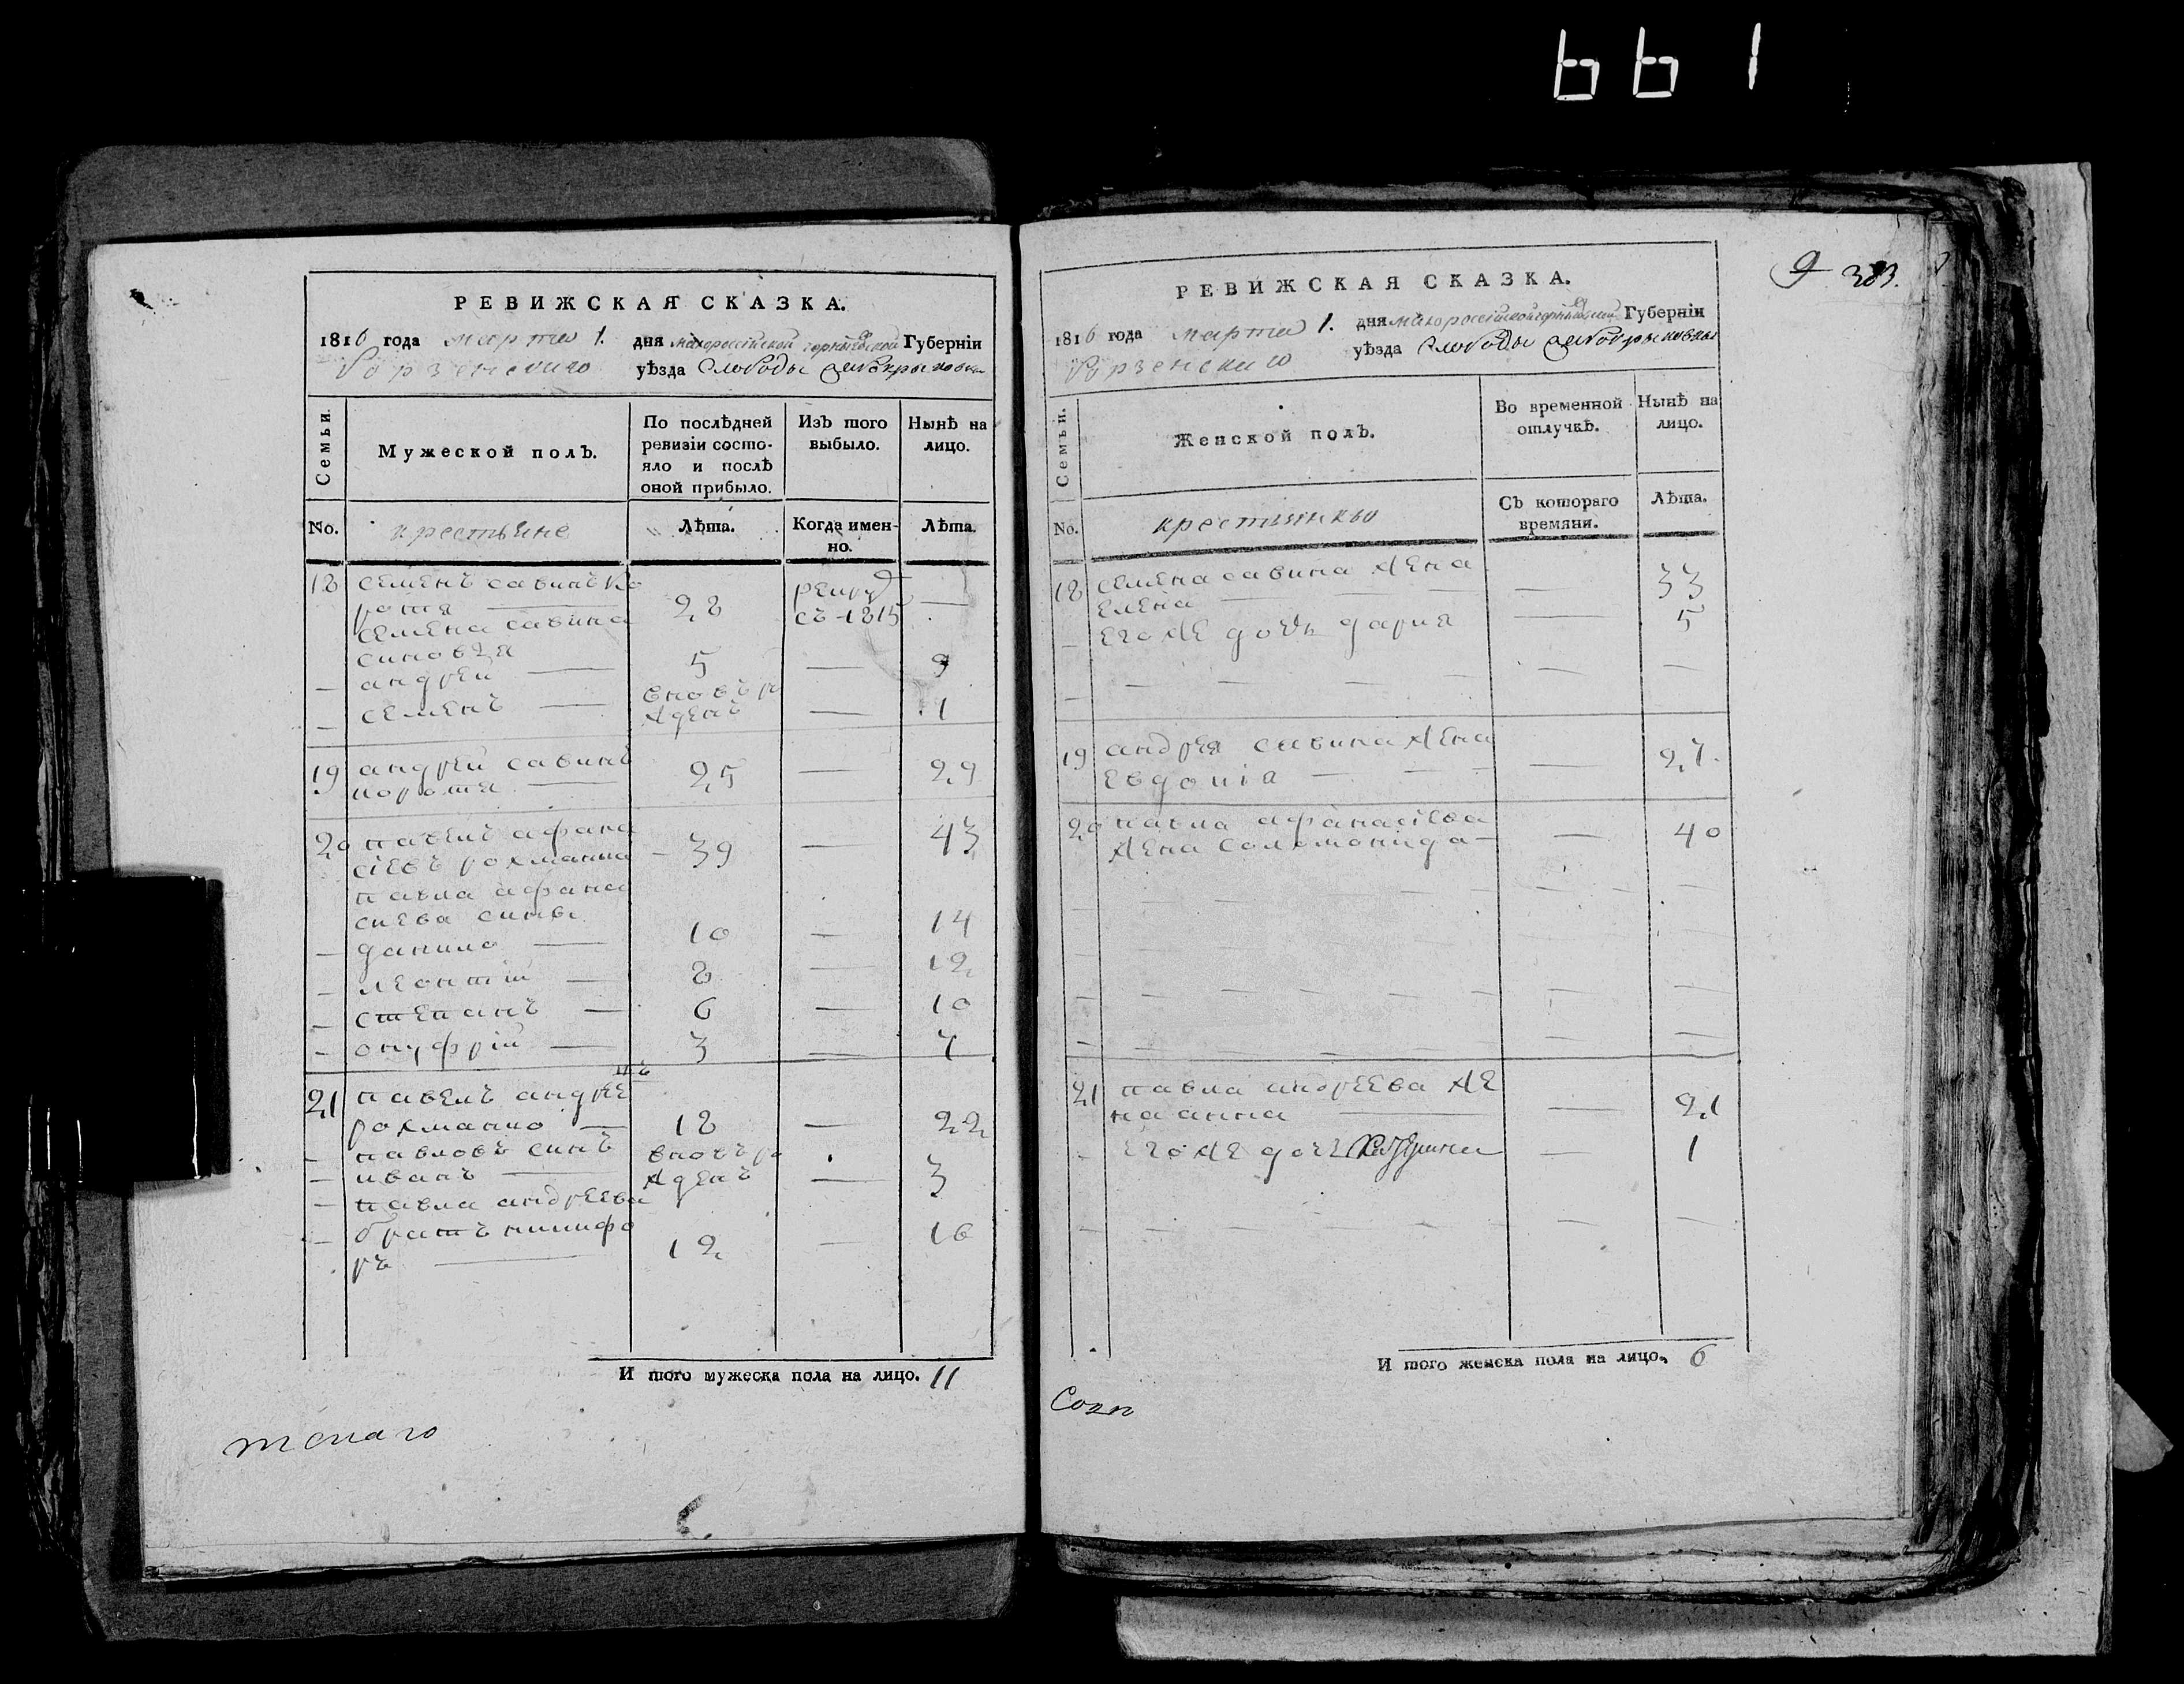 661
РЕВИЖСКАЯ СКАЗКА.
1816 года марта 1. дня малороссійской черниговской Губерніи
Борзенского уѣзда Слободы
Семьи.
Мужеской полъ.
По послѣдней ревизіи состо-
яло и послѣ
оной прибыло.
Изъ того
выбыло.
Нынѣ на
лицо.
No.
крестьяне
Лѣта.
Когда имен-
но.
Лѣта.
18 семенъ савинъ ко
ротя — 28 рекрут
съ 1815 —
семена савина
синовья
— андрей — 5 — 9
— семенъ — вновъ ро
жденъ — 1
19 андрей савинъ
коротя — 25 — 29
20 павелъ афана
сіевъ рохманко — 39 — 43
павла афана
сиева сины
— данило — 10 — 14
— леонтій — 8 — 12
— степанъ — 6 — 10
— онуфрій — 3 — 7
21 павелъ андрее
въ
рохманко — 18 — 22
— павловъ синъ вновъ ро
— иванъ — жденъ — 3
— павла андреева
— братъ никифо
ръ — 12 — 16
И того мужеска пола на лицо. 11
9 383.
РЕВИЖСКАЯ СКАЗКА.
1816 года марта 1. дня малороссійской черниговской Губерніи
Борзенского уѣзда Слободы
Семьи.
Женской полъ.
Во временной
отлучкѣ.
Нынѣ на
лицо.
No.
крестьянки
Съ котораго
времяни.
Лѣта.
18 семена савина жена
елена — — 33
— его же дочь дария — 5
19 андрея савина жена
евдокіа — — 27.
20 павла афанасіева
жена соломонида — — 40
21 павла андреева же
на анна — — 21
— его же дочь — 1
И того женска пола на лицо. 6